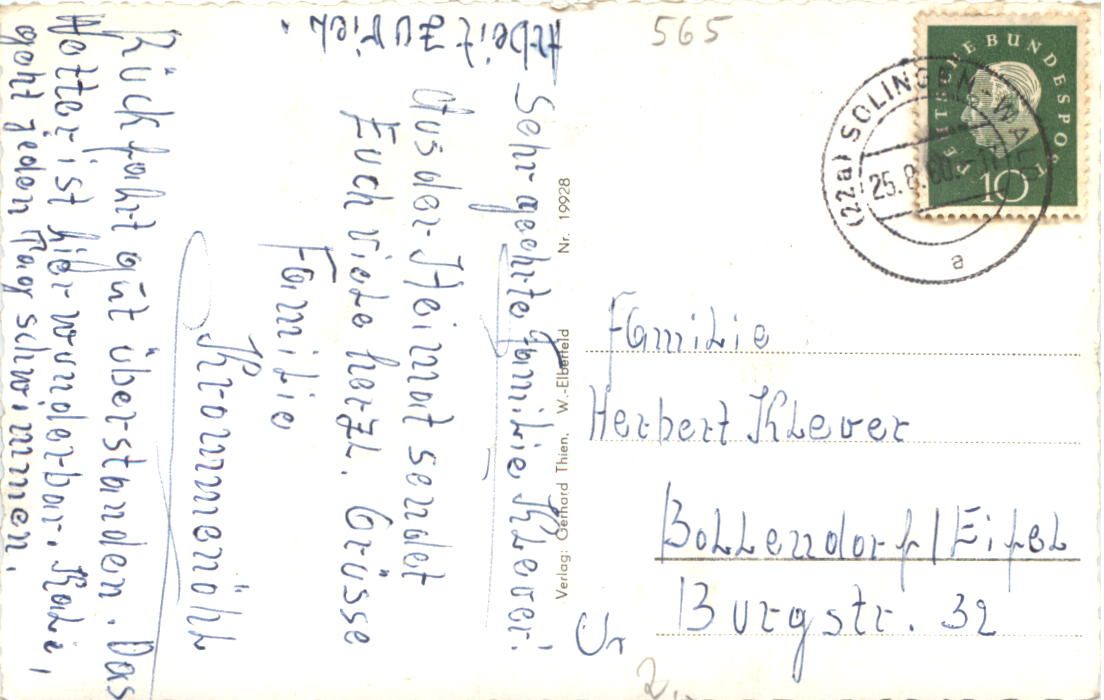 Sehr geehrte Familie Klever!
Aus der Heimat sendet
Euch viele herzl. Grüsse
Familie
Krommenöhl
Rückfahrt gut überstanden. Das
Wetter ist hier wunderbar.
geht jeden Tag schwimmen.
Arbeit zu viel.
565
DEUTSCHE BUNDESPOST
10
(22a) SOLINGEN-WA
25.8.60.
a
Verlag: Gerhard Thien, W.-Elberfeld Nr. 19928
Familie
Herbert Klever
Bollendorf/Eifel
Burgstr. 32
2.